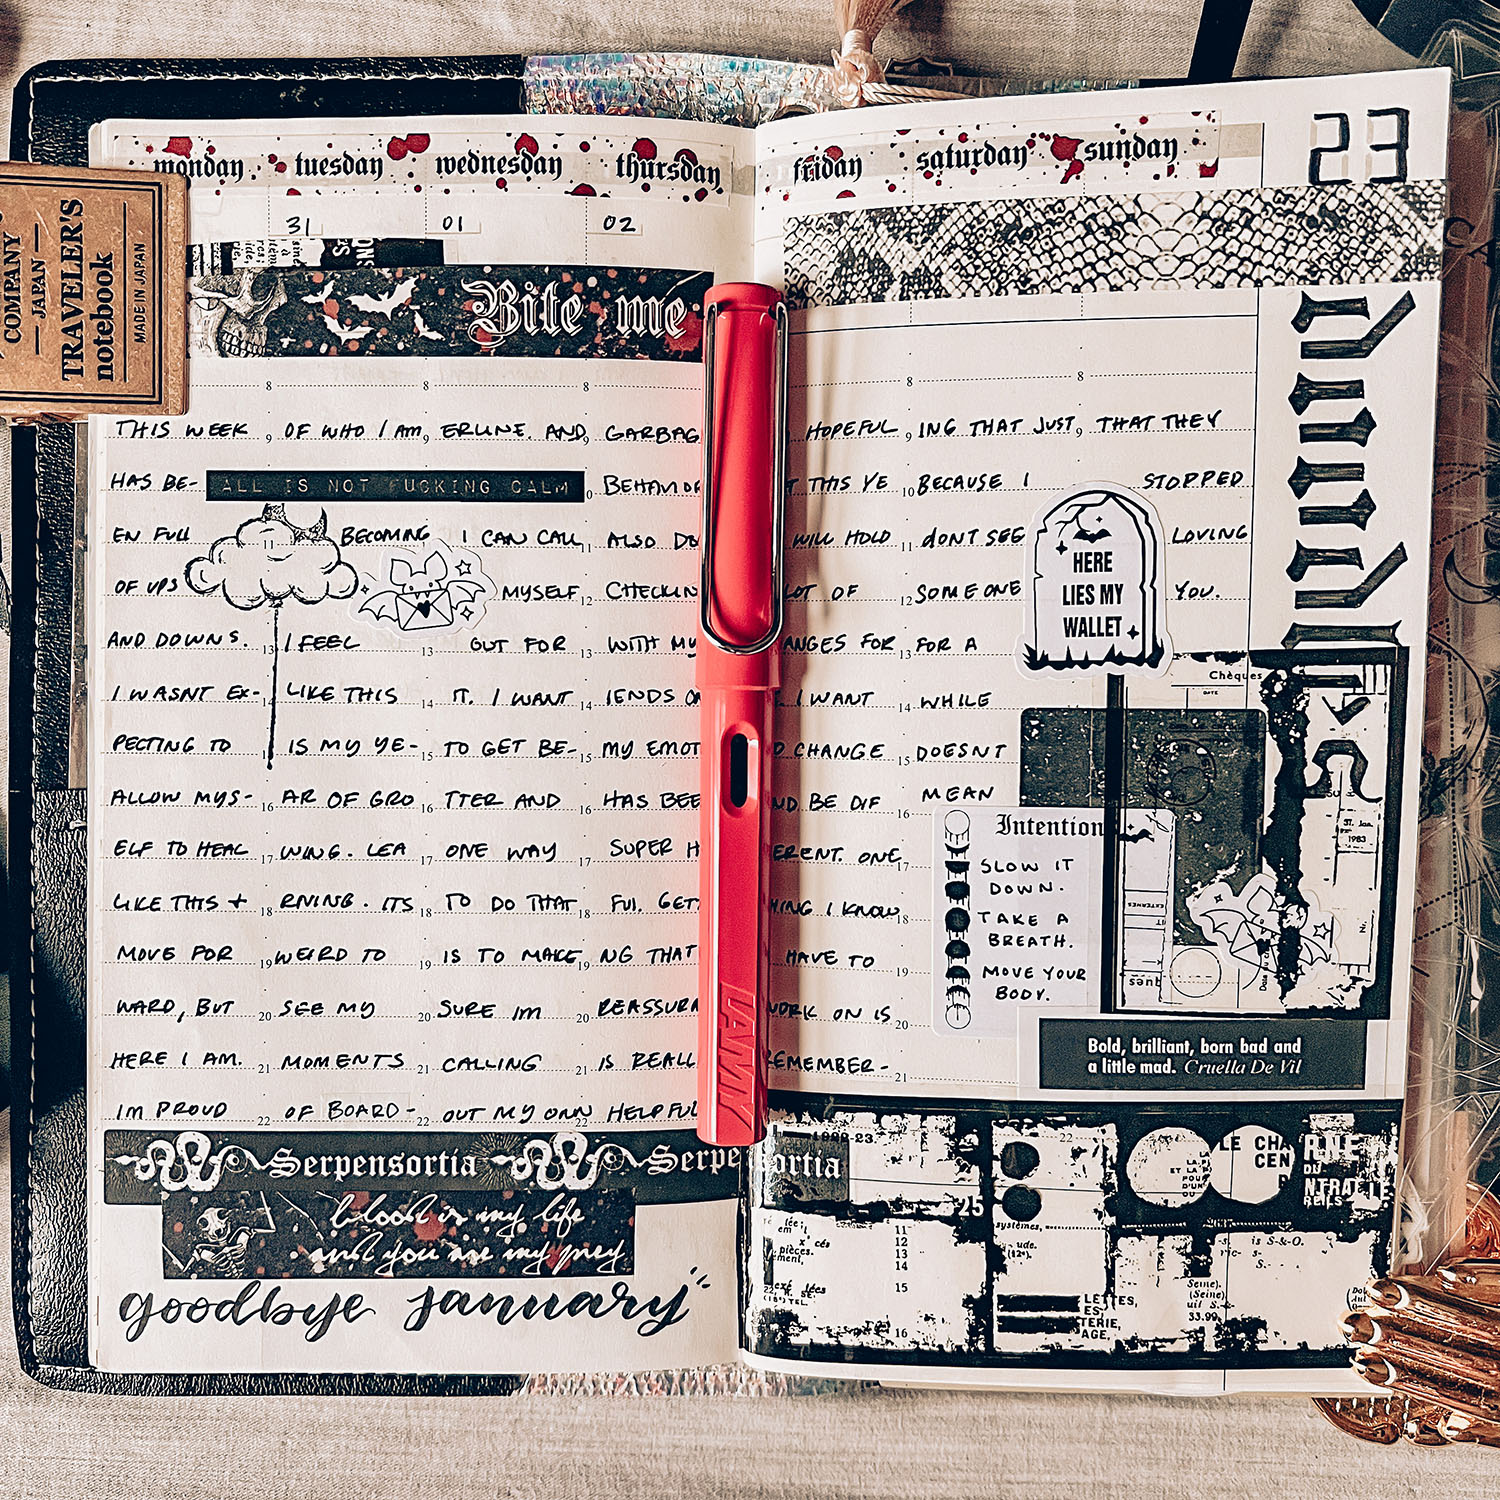 monday tuesday wednesday thursday friday saturday sunday
23
31 01 02
COMPANY
— JAPAN —
TRAVELER'S
notebook
MADE IN JAPAN
Bite me
8 8 8 8 8
THIS WEEK
HAS BE-
EN FULL
OF UPS
AND DOWNS.
I WASNT EX-
PECTING TO
ALLOW MYS-
ELF TO HEAL
LIKE THIS +
MOVE FOR
WARD, BUT
HERE I AM.
IM PROUD
OF WHO I AM
ALL IS NOT FUCKING CALM
BECOMING
I FEEL
LIKE THIS
IS MY YE-
AR OF GRO
WING. LEA
RNING. ITS
WEIRD TO
SEE MY
MOMENTS
OF BOARD-
ERLINE. AND
I CAN CALL
MYSELF
OUT FOR
IT. I WANT
TO GET BE-
TTER AND
ONE WAY
TO DO THAT
IS TO MAKE
SURE IM
CALLING
OUT MY OWN
GARBAG
BEHAVIOR
ALSO DO
CHECKIN
WITH MY
IENDS ON
MY EMOT
HAS BEE
SUPER H
FUL. GET
NG THAT
REASSURA
IS REALL
HELPFUL
HOPEFUL
THIS YE
WILL HOLD
LOT OF
ANGES FOR
I WANT
D CHANGE
ND BE DIF
ERENT. ONE
HING I KNOW
HAVE TO
WORK ON IS
EMEMBER-
ING THAT JUST
BECAUSE I
DONT SEE
SOMEONE
FOR A
WHILE
DOESNT
MEAN
THAT THEY
STOPPED
LOVING
YOU.
HERE
LIES MY
WALLET
Intention
SLOW IT
DOWN.
TAKE A
BREATH.
MOVE YOUR
BODY.
Chèques
DATE
31. Jan.
1983
Bold, brilliant, born bad and
a little mad. Cruella De Vil
LAMY
Serpensortia Serpe
ortia
blood is my life
and you are my prey
goodbye january
25
11
12
13
14
15
16
22
LE CHA
CEN
DU
NTRA
systèmes,
ude.
(12e).
pièces.
LETTES,
ES
TERIE,
AGE,
is S-&-O.
Seine).
(Seine).
33.99